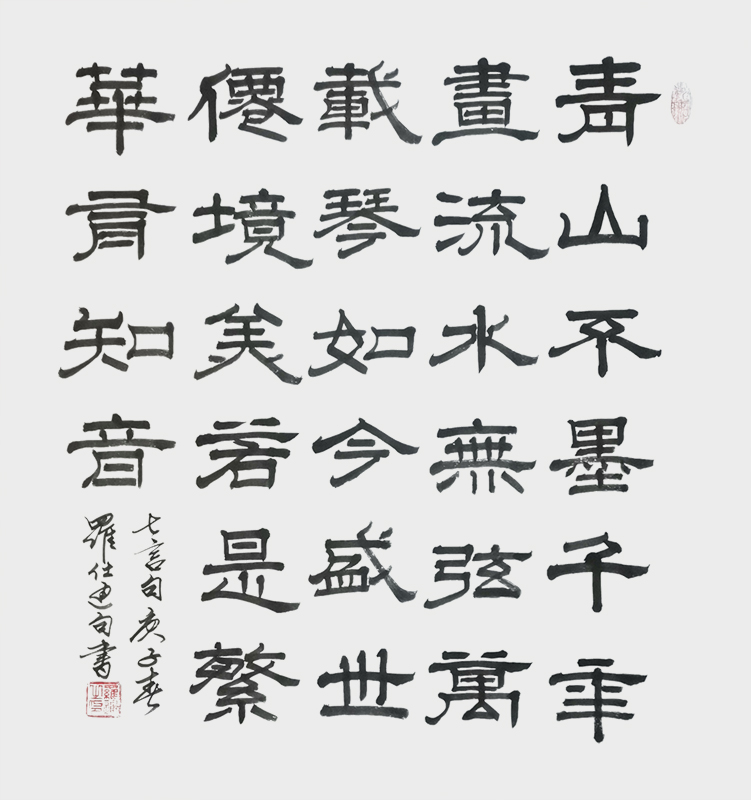 青山不墨千年
畫流水無弦萬
載琴如今盛世
僊境美若是繁
華有知音
七言句庚子春
羅仕句書